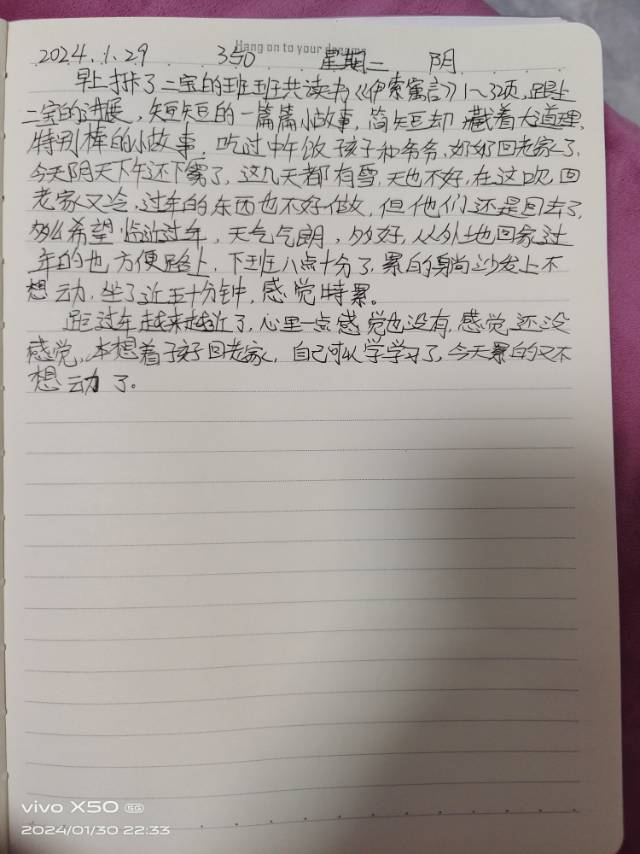 Hang on to your dreams
2024.1.29 350 星期二 阴
早上打卡了二宝的班班共读书《伊索寓言》1~32页,跟上
二宝的进展,短短的一篇篇小故事,简短却藏着大道理,
特别棒的小故事。吃过中午饭孩子和爷爷,奶奶回老家了,
今天阴天下午还下雾了,这几天都有雪,天也不好,在这吹,回
老家又冷,过年的东西也不好做,但他们还是回去了,
多么希望临近过年,天气气朗,多好,从外地回家过
年的也方便路上,下班八点十分了,累的躺沙发上不
想动,坐了近五十分钟,感觉特累。
距过年越来越近了,心里一点感觉也没有,感觉还没
感觉,本想着孩子回老家,自己可以学学习了,今天累的又不
想动了。
vivo X50 5G
2024/01/30 22:33